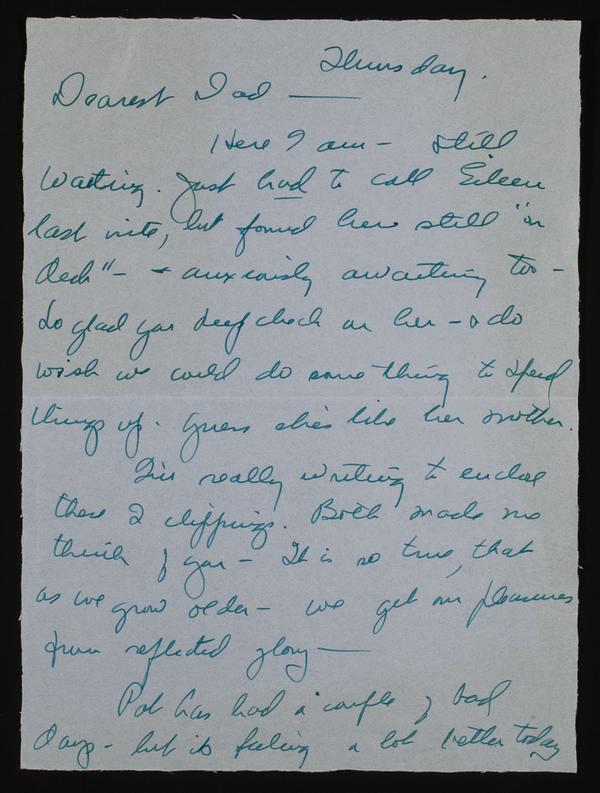 Thursday.
Dearest Dad —
Here I am - still
waiting. Just had to call Eileen
last nite, but found her still "on
deck" - & anxiously awaiting too -
So glad you keep check on her - & do
wish we could do something to speed
things up. Guess she's like her mother.
I'm really writing to enclose
these 2 clippings. Both made me
think of you - It is so true, that
as we grow older - we get our pleasures
from reflected glory —
Pat has had a couple of bad
days - but is feeling a lot better today